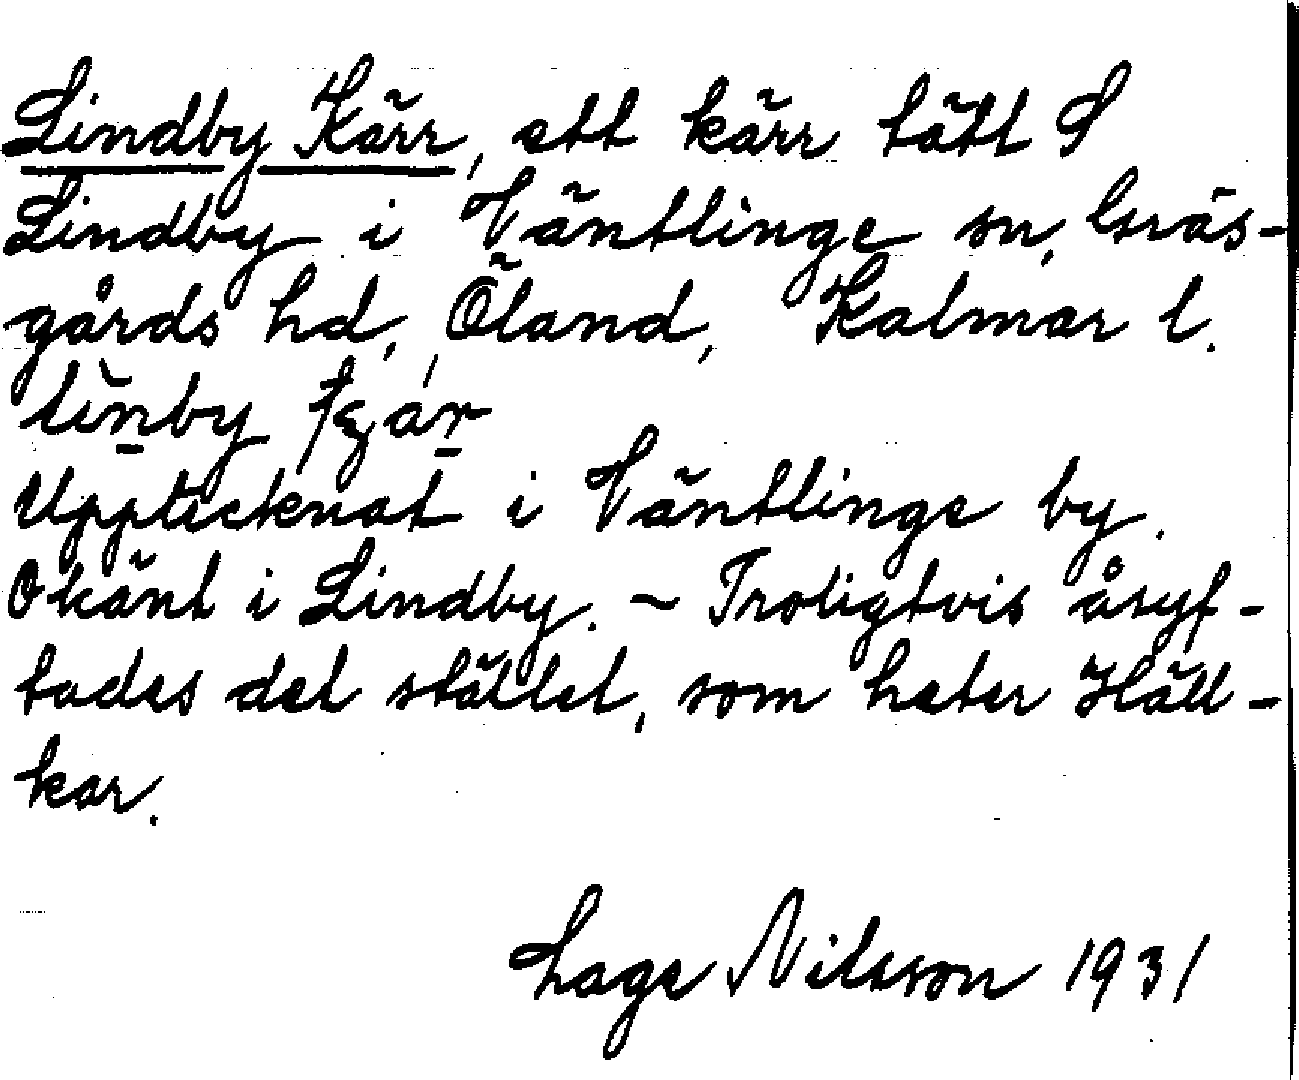 Lindby Kärr, ett kärr tätt S
Lindby i Väntlinge sn, Gräs-
gårds hd, Öland, Kalmar l.
Upptecknat i Väntlinge by.
Okänt i Lindby. - Troligtvis åsyf-
tades det stället, som heter Häll-
kar.
Lage Nilsson 1931